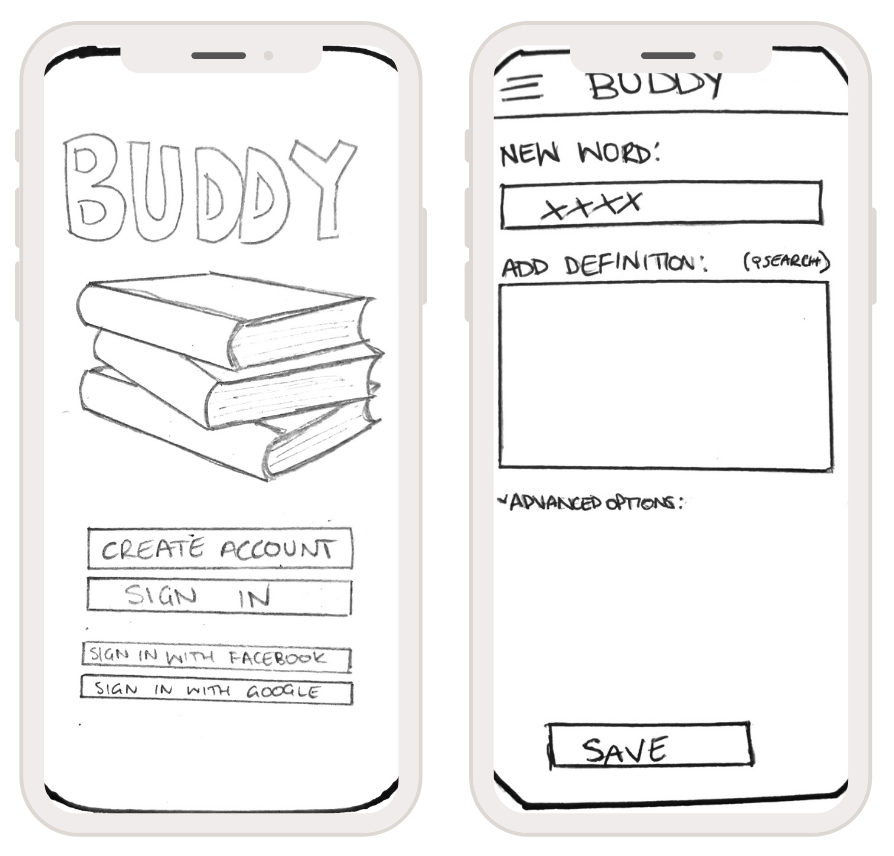 BUDDY
CREATE ACCOUNT
SIGN IN
SIGN IN WITH FACEBOOK
SIGN IN WITH GOOGLE
BUDDY
NEW WORD:
XXXX
ADD DEFINITION: (SEARCH)
ADVANCED OPTIONS:
SAVE